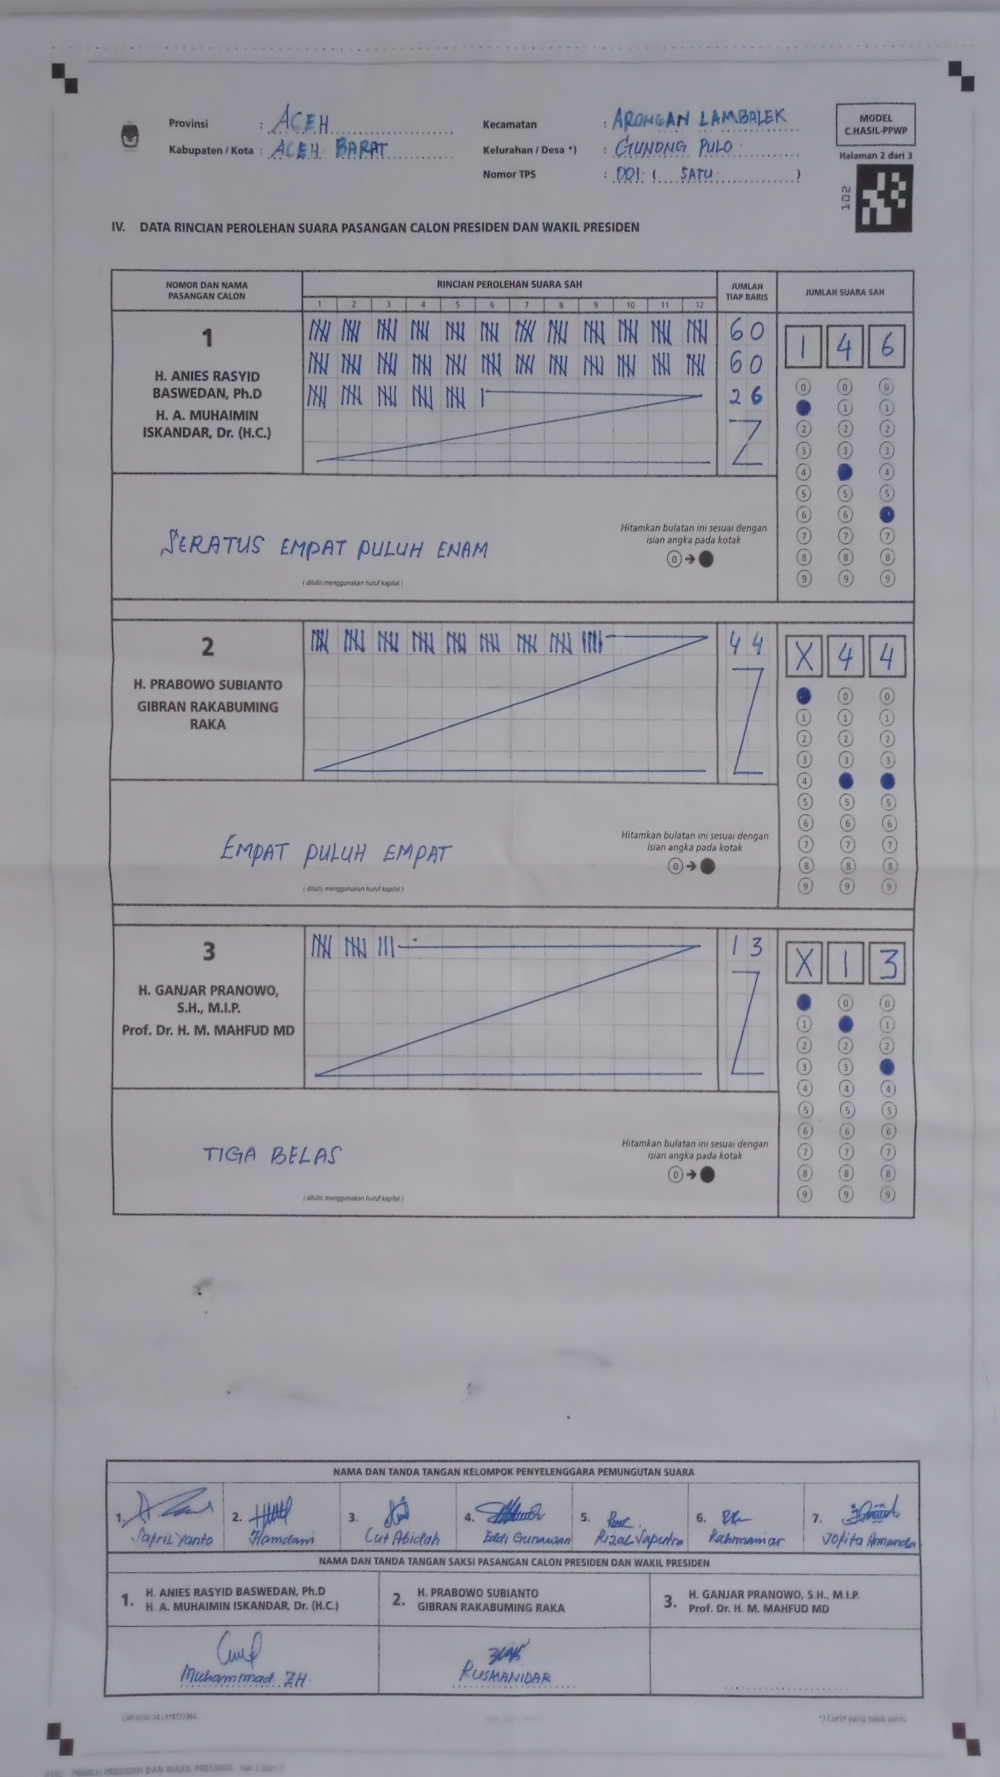 Provinsi : ACEH
Kabupaten / Kota : ACEH BARAT
Kecamatan : ARONGAN LAMBALEK
Kelurahan / Desa *) : GUNONG PULO
Nomor TPS : 001 ( SATU )
MODEL
C.HASIL-PPWP
Halaman 2 dari 3
102
IV. DATA RINCIAN PEROLEHAN SUARA PASANGAN CALON PRESIDEN DAN WAKIL PRESIDEN
NOMOR DAN NAMA
PASANGAN CALON
RINCIAN PEROLEHAN SUARA SAH
1 2 3 4 5 6 7 8 9 10 11 12
JUMLAH
TIAP BARIS
JUMLAH SUARA SAH
1
H. ANIES RASYID
BASWEDAN, Ph.D
H. A. MUHAIMIN
ISKANDAR, Dr. (H.C.)
60
60
26
1 4 6
0 0 0
1 1
2 2 2
3 3 3
4 4
5 5 5
6 6
7 7 7
8 8 8
9 9 9
SERATUS EMPAT PULUH ENAM
( ditulis menggunakan huruf kapital )
Hitamkan bulatan ini sesuai dengan
isian angka pada kotak
0
2
H. PRABOWO SUBIANTO
GIBRAN RAKABUMING
RAKA
44
X 4 4
0 0
1 1 1
2 2 2
3 3 3
4
5 5 5
6 6 6
7 7 7
8 8 8
9 9 9
EMPAT PULUH EMPAT
( ditulis menggunakan huruf kapital )
Hitamkan bulatan ini sesuai dengan
isian angka pada kotak
0
3
H. GANJAR PRANOWO,
S.H., M.I.P.
Prof. Dr. H. M. MAHFUD MD
13
X 1 3
0 0
1 1
2 2 2
3 3
4 4 4
5 5 5
6 6 6
7 7 7
8 8 8
9 9 9
TIGA BELAS
( ditulis menggunakan huruf kapital )
Hitamkan bulatan ini sesuai dengan
isian angka pada kotak
0
NAMA DAN TANDA TANGAN KELOMPOK PENYELENGGARA PEMUNGUTAN SUARA
1. 2. 3. 4. 5. 6. 7.
Safril Yanto Hamdani Cut Abidah Eddi Gunawan Rizal Saputra Rahmaniar Jopita Armanda
NAMA DAN TANDA TANGAN SAKSI PASANGAN CALON PRESIDEN DAN WAKIL PRESIDEN
1. H. ANIES RASYID BASWEDAN, Ph.D
H. A. MUHAIMIN ISKANDAR, Dr. (H.C.)
2. H. PRABOWO SUBIANTO
GIBRAN RAKABUMING RAKA
3. H. GANJAR PRANOWO, S.H., M.I.P.
Prof. Dr. H. M. MAHFUD MD
Muhammad ZH
RUSMANIDAR
*) Coret yang tidak perlu